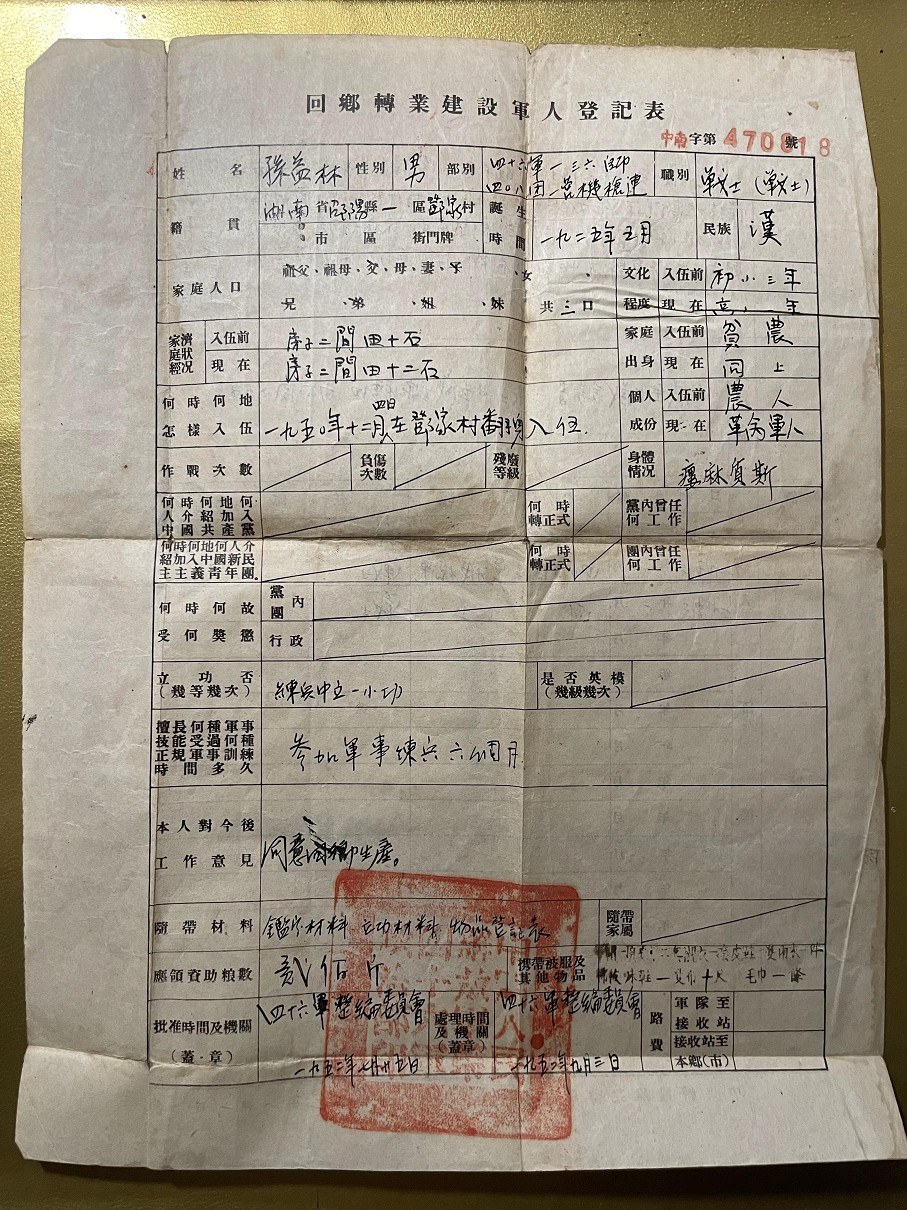 回鄉轉業建設軍人登記表
中南字第470818號
姓名 孫益林 性別 男 部別 四十六軍一三六師四〇八团一营機槍連 職別 戰士（戰士）
籍貫 湖南省邵陽縣一區鄧家村
市 區 街門牌
誕生時間 一九二五年五月 民族 漢
家庭人口 祖父、祖母、父、母、妻、子、女、
兄、弟、姐、妹 共三口
文化程度 入伍前 初小三年
現在 高小一年
家庭經濟狀况 入伍前 房子二間田十石
現在 房子二間田十二石
家庭出身 入伍前 貧農
現在 同上
何時何地怎樣入伍 一九五〇年十二月四日在鄧家村 入伍.
個人成份 入伍前 農人
現在 革命軍人
作戰次數 負傷次數 殘廢等級 身體情况 痳麻質斯
何時何地何人介紹加入中國共產黨 何時轉正式 黨內曾任何工作
何時何地何人介紹加入中國新民主主義青年團。 何時轉正式 團內曾任何工作
何時何故受何獎懲 黨團內
行政
立功否（幾等幾次） 練兵中立一小功 是否英模（幾級幾次）
擅長何種軍事技能受過何種正規軍事訓練時間多久 參加軍事練兵六個月
本人對今後工作意見 同意回鄉生產。
隨帶材料 鑑定材料 立功材料 物品登記表 隨帶家屬
應領資助粮數 貳佰斤 携帶被服及其他物品 毛巾一條
批准時間及機關（蓋·章） 四十六軍整編委員會
一九五二年七月廿五日
處理時間及機關（蓋章） 四十六軍整編委員會
一九五二年九月三日
路費 軍隊至接收站
接收站至本鄉（市）